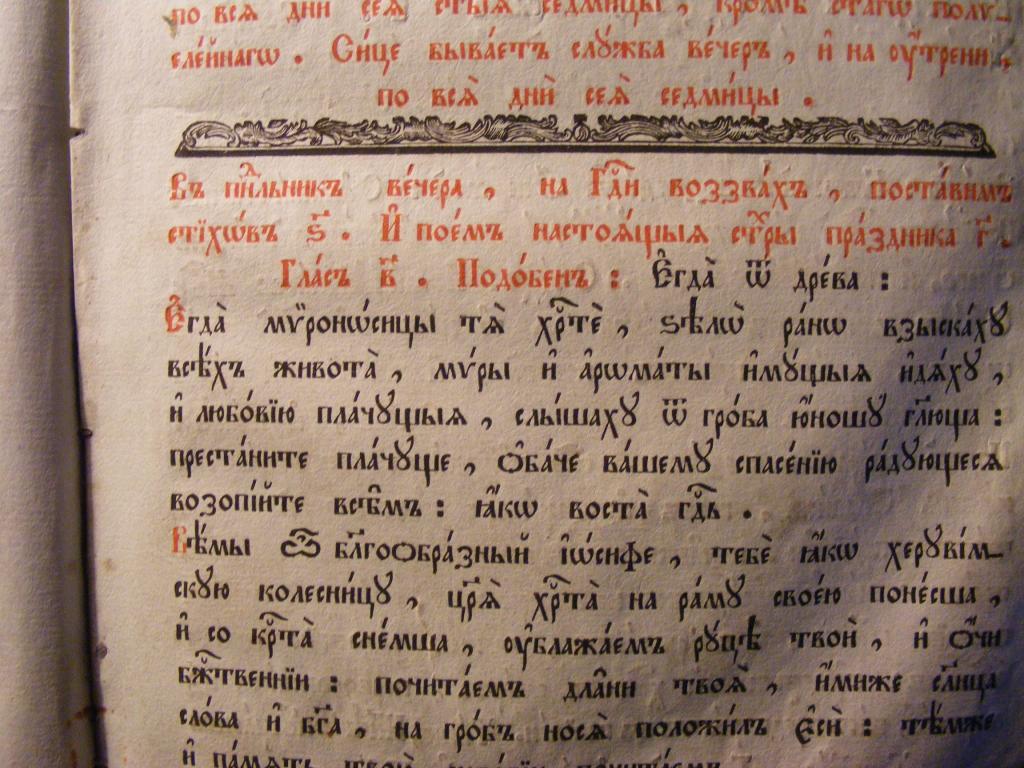 по всѧ̀ дни̑ сеѧ̀ ст҃ыѧ седми́цы, кромѣ̀ ст҃агѡ полѵ-
еле́йнагѡ. Си́це быва́етъ слꙋ́жба ве́черъ, и҆ на оу҆́трени,
по всѧ̑ дни̑ сеѧ̀ седми́цы.
Въ пн҃льникъ ве́чера, на Гдⷭ҇и воззва́хъ, поста́вимъ
стїхѡ́въ ѕ҃. И҆ пое́мъ настоѧ́щыѧ стⷯры пра́здника г҃.
Гла́съ в҃. Подо́бенъ: Е҆гда̀ ѿ дре́ва:
Е҆гда̀ мѷронѡ́сицы тѧ̀ хрⷭ҇тѐ, ѕѣлѡ̀ ра́нѡ взыска́хꙋ
всѣ́хъ живота̀, мѵ́ры и҆ а҆рѡма́ты и҆мꙋ́щыѧ и҆дѧ́хꙋ,
и҆ любо́вїю пла́чꙋщыѧ, слы́шахꙋ ѿ гро́ба ю҆́ношꙋ гл҃юща:
преста́ните пла́чꙋще, ѻ҆ба́че ва́шемꙋ спасе́нїю ра́дꙋющесѧ
возопі́йте всѣ̑мъ: ꙗ҆́кѡ воста̀ гдⷭ҇ь.
Вѣ́мы ѽ бл҃гоѻбра́зный і҆ѡ́сифе, тебѐ ꙗ҆́кѡ херꙋві́м-
скꙋю колесни́цꙋ, цр҃ѧ̀ хрⷭ҇та̀ на ра́мꙋ свое́ю поне́сша,
и҆ со крⷭ҇та̀ сне́мша, оу҆блажа́емъ рꙋ́цѣ твоѝ, и҆ ѻ҆́чи
бжⷭ҇твеннїи: почита́емъ дла̑ни твоѧ̑, и҆́миже сл҃нца
сло́ва и҆ бг҃а, на гро́бъ носѧ̀ положи́лъ є҆сѝ: тѣ́мже
и҆ па́мѧть твою̀